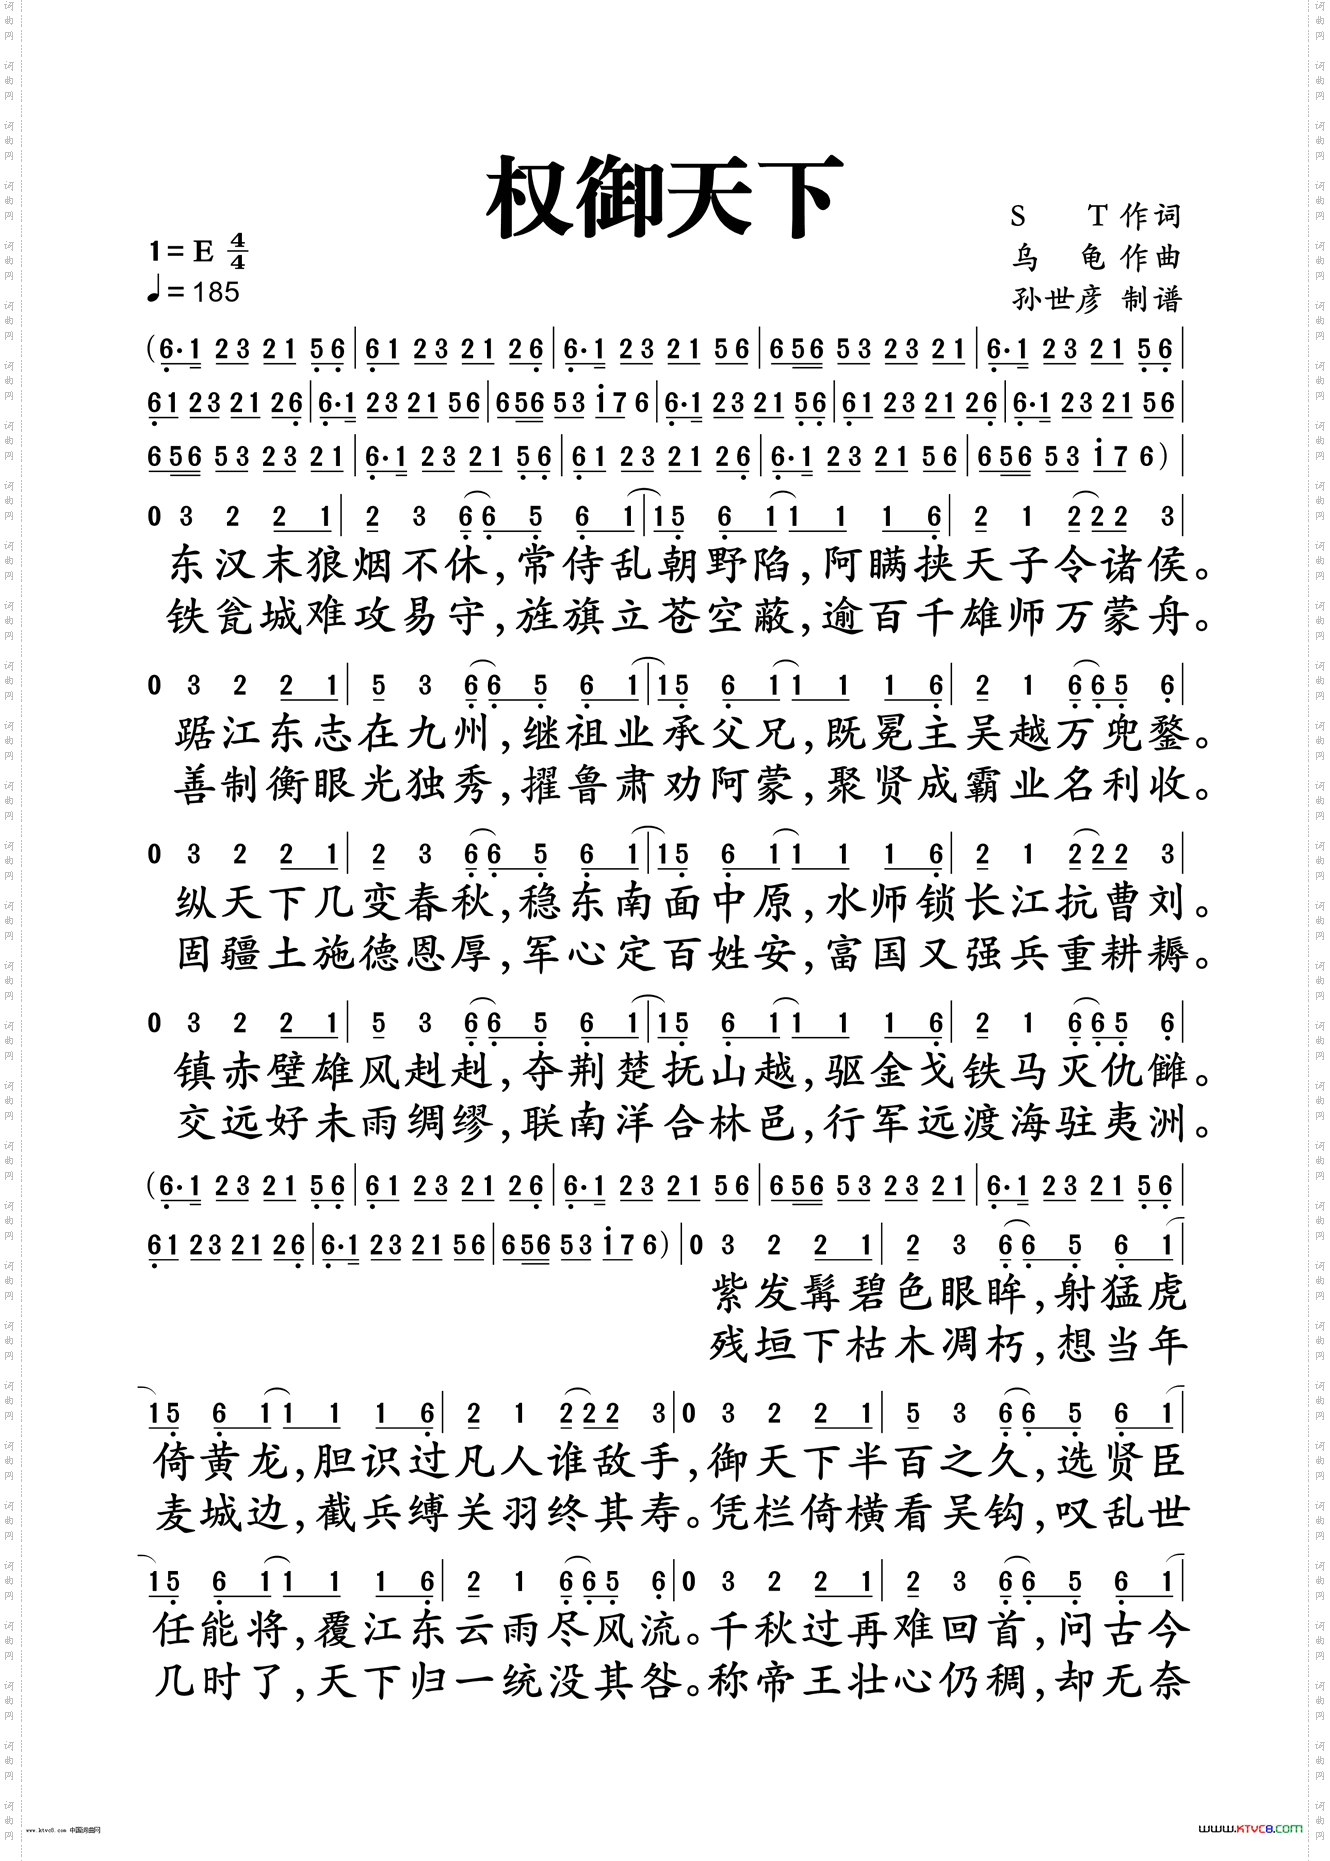 权御天下
S T 作词
1=E 4/4
乌 龟 作曲
♩=185
孙世彦 制谱
(6·1 23 21 56|61 23 21 26|6·1 23 21 56|656 53 23 21|6·1 23 21 56|
61 23 21 26|6·1 23 21 56|656 53 i7 6|6·1 23 21 56|61 23 21 26|6·1 23 21 56|
656 53 23 21|6·1 23 21 56|61 23 21 26|6·1 23 21 56|656 53 i7 6)|
0 3 2 2 1|2 3 6 6 5 6 1|1 5 6 1 1 1 1 6|2 1 2 2 2 3|
东汉末狼烟不休,常侍乱朝野陷,阿瞒挟天子令诸侯。
铁瓮城难攻易守,旌旗立苍空蔽,逾百千雄师万蒙舟。
0 3 2 2 1|5 3 6 6 5 6 1|1 5 6 1 1 1 1 6|2 1 6 6 5 6|
踞江东志在九州,继祖业承父兄,既冕主吴越万兜鍪。
善制衡眼光独秀,擢鲁肃劝阿蒙,聚贤成霸业名利收。
0 3 2 2 1|2 3 6 6 5 6 1|1 5 6 1 1 1 1 6|2 1 2 2 2 3|
纵天下几变春秋,稳东南面中原,水师锁长江抗曹刘。
固疆土施德恩厚,军心定百姓安,富国又强兵重耕耨。
0 3 2 2 1|5 3 6 6 5 6 1|1 5 6 1 1 1 1 6|2 1 6 6 5 6|
镇赤壁雄风赳赳,夺荆楚抚山越,驱金戈铁马灭仇雠。
交远好未雨绸缪,联南洋合林邑,行军远渡海驻夷洲。
(6·1 23 21 56|61 23 21 26|6·1 23 21 56|656 53 23 21|6·1 23 21 56|
61 23 21 26|6·1 23 21 56|656 53 i7 6)|0 3 2 2 1|2 3 6 6 5 6 1|
紫发髯碧色眼眸,射猛虎
残垣下枯木凋朽,想当年
1 5 6 1 1 1 1 6|2 1 2 2 2 3|0 3 2 2 1|5 3 6 6 5 6 1|
倚黄龙,胆识过凡人谁敌手,御天下半百之久,选贤臣
麦城边,截兵缚关羽终其寿。凭栏倚横看吴钩,叹乱世
1 5 6 1 1 1 1 6|2 1 6 6 5 6|0 3 2 2 1|2 3 6 6 5 6 1|
任能将,覆江东云雨尽风流。千秋过再难回首,问古今
几时了,天下归一统没其咎。称帝王壮心仍稠,却无奈
www.ktvc8.com 中国词曲网
www.KTVC8.com